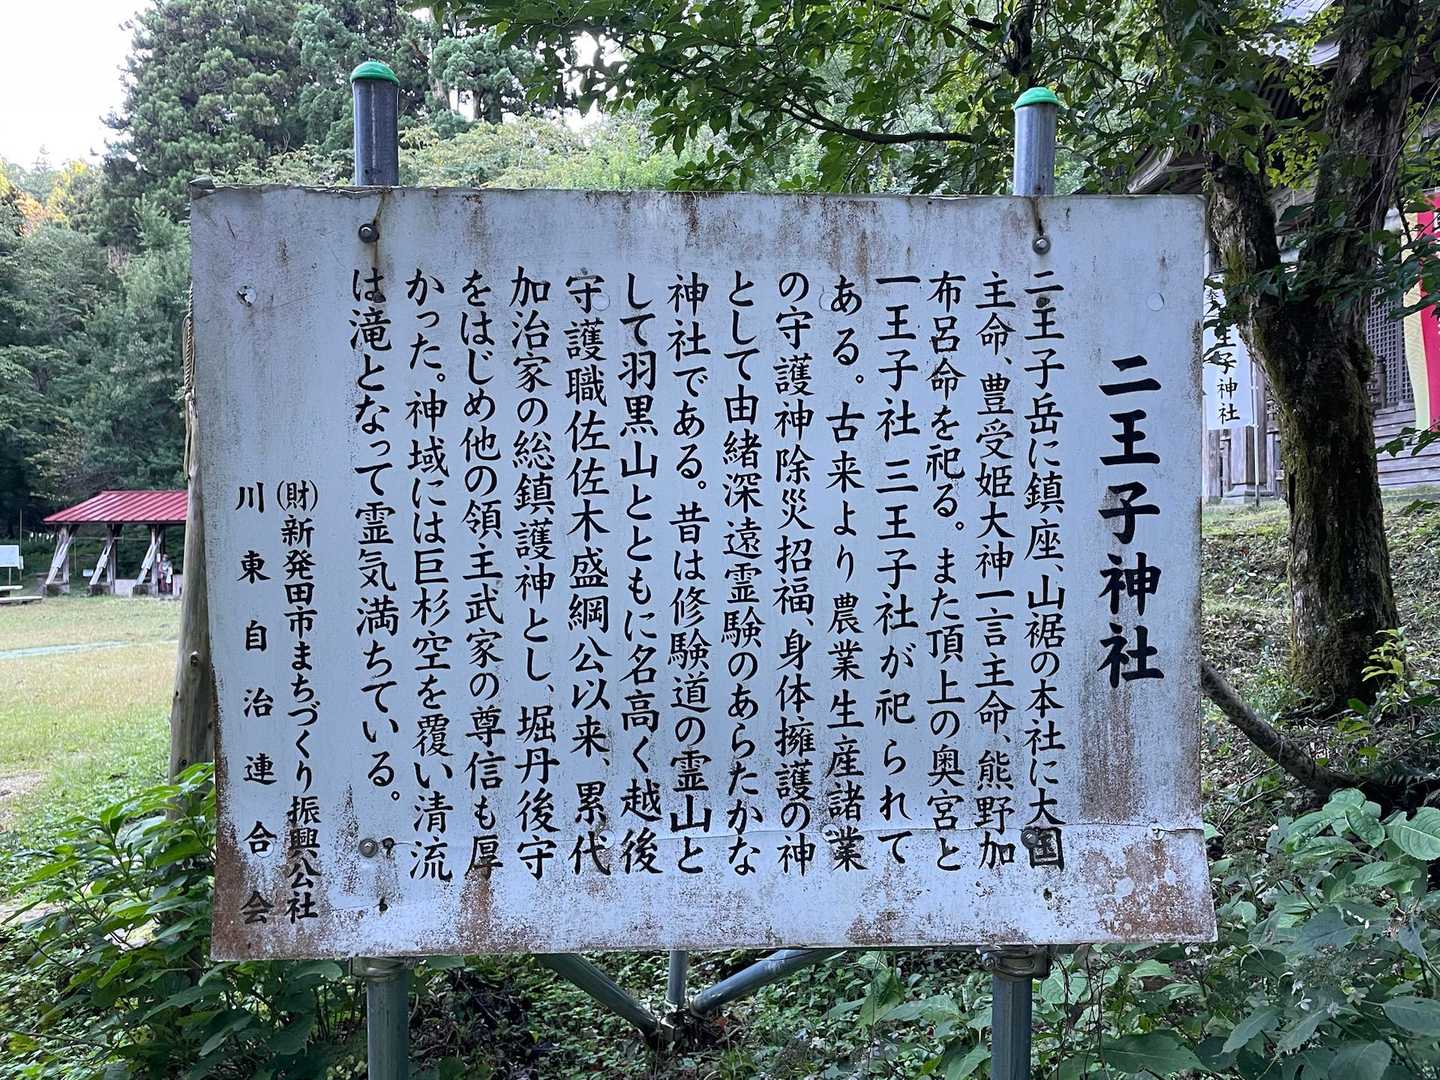 二王子神社
二王子岳に鎮座、山裾の本社に大国
主命、豊受姫大神一言主命、熊野加
布呂命を祀る。また頂上の奥宮と
一王子社三王子社が祀られて
ある。古来より農業生産諸業
の守護神除災招福、身体擁護の神
として由緒深遠霊験のあらたかな
神社である。昔は修験道の霊山と
して羽黒山とともに名高く越後
守護職佐佐木盛綱公以来、累代
加治家の総鎮護神とし、堀丹後守
をはじめ他の領主武家の尊信も厚
かった。神域には巨杉空を覆い清流
は滝となって霊気満ちている。
(財)新発田市まちづくり振興公社
川東自治連合会
王子神社